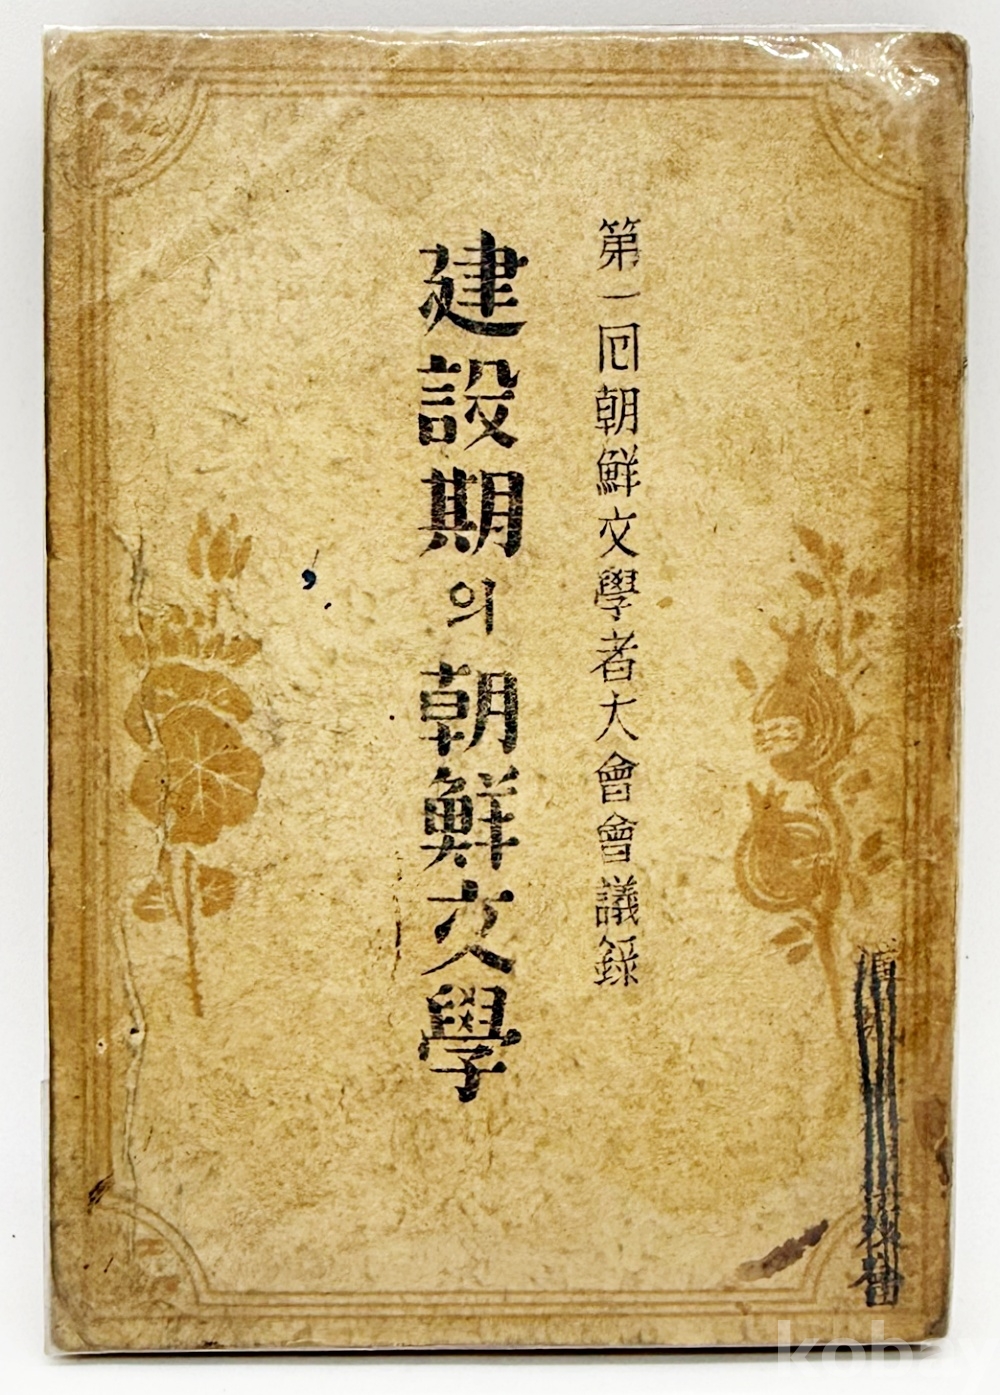 第一回朝鮮文學者大會會議錄
建設期의朝鮮文學
kobay